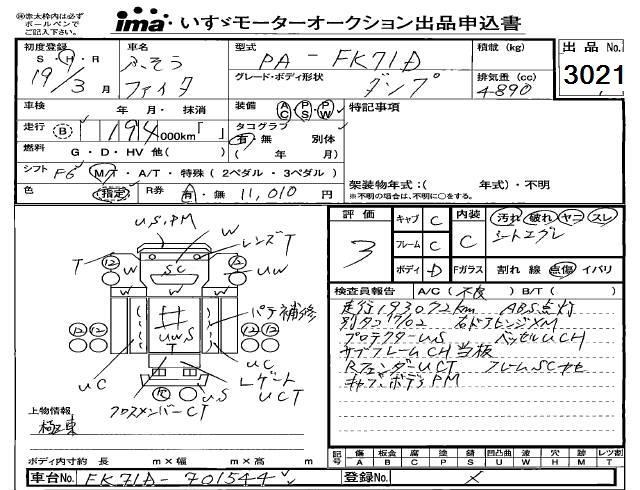 ㊟赤太枠内は必ず
ボールペンで
ご記入下さい。
ima いすゞモーターオークション出品申込書
初度登録 車名 型式 積載 (kg) 出品 No.
S・H・R ふそう PA - FK71D
19/3 月 ファイタ グレード・ボディ形状 ダンプ 排気量 (cc) 4890 3021
車検 年 月・ 抹消 装備 AC PS PW 特記事項
走行 B 194,000km「 」 タコグラフ 有・無 別体
燃料 G・D・HV 他( ) ( 年 月)
シフト F6 M/T・A/T・特殊 (2ペダル・3ペダル) 架装物年式:( 年式)・不明
色 指定 R券 有・無 11,010 円 ※不明の場合は、不明に○をする。
評価 3 キャブ C 内装 C 汚れ 破れ ヤニ スレ
フレーム C シートエグレ
ボディ D Fガラス 割れ 線 点傷 イバリ
検査員報告 A/C(不良) B/T( )
走行193072km ABS点灯
別タコ17/02 右ドアヒンジXM
プロテクターU,S ベッセルUCH
サブフレームCH当板
RフェンダーUCT フレームSCサビ
キャブ、ボデーPM
U,S,PM
W
レンズT
T 12 SC 12 UW
W W
パテ補修
12 12 UW,S
T
UC UC
Lゲート
UCT
R U,S
クロスメンバーCT
上物情報
極東
ボディ内寸約 長 m×幅 m×高 m
記号 傷 板金 腐 塗 錆 凹凸曲 波 穴 跡 レツ割
A B C P S U W H M T
車台No. FK71D-701544 登録No. ×